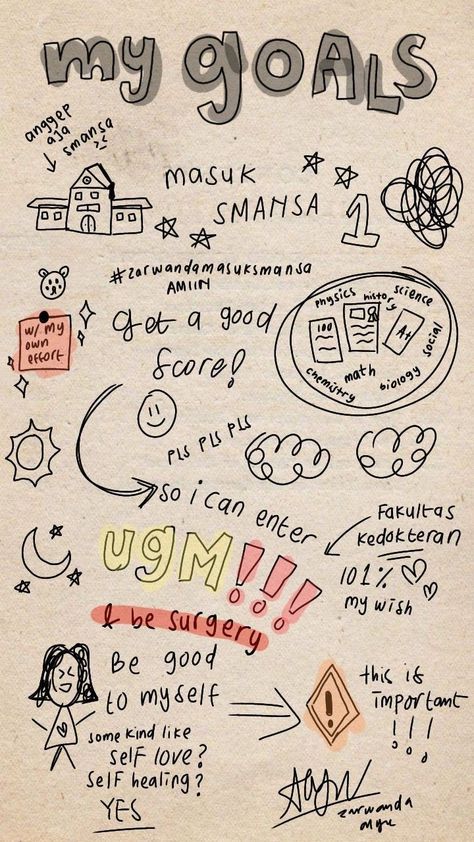 my GOALS
anggep
aja
smansa
masuk
SMANSA 1
#zarwandamasuksmansa
AMIIN
w/ my
own
effort
get a good
score!
physics
history
science
social
biology
math
chemistry
100
A+
PLS PLS PLS
so i can enter
UGM!!!
& be surgery
Fakultas
Kedokteran
101%
my wish
Be good
to myself
some kind like
self love?
self healing?
YES
!
this is
important
!!!
zarwanda